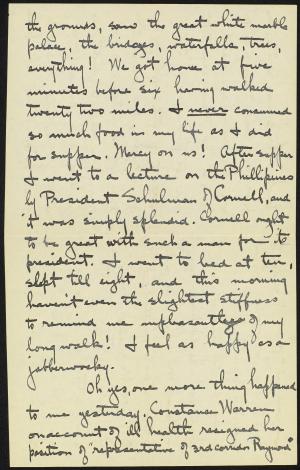 the grounds, saw the great white marble
palace, the bridges, waterfalls, trees,
everything! We got home at five
minutes before six having walked
twenty two miles. I never consumed
so much food in my life as I did
for supper. Mercy on us! After supper
I went to a lecture on the Phillipines
by President Schulman of Cornell, and
it was simply splendid. Cornell ought
to be great with such a man for its
president. I went to bed at ten,
slept till eight, and this morning
haven't even the slightest stiffness
to remind me unpleasantly of my
long walk! I feel as happy as a
jabberwocky.
Oh yes, one more thing happened
to me yesterday. Constance Warren
on account of ill health resigned her
position of representative of 3rd corridor Raymond